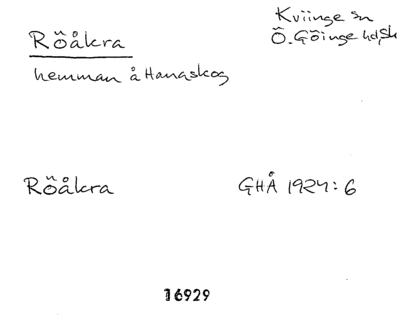 Röåkra
Kviinge sn
Ö. Göinge hd, Sk
hemman å Hanaskog
Röåkra
GHÅ 1924: 6
16929